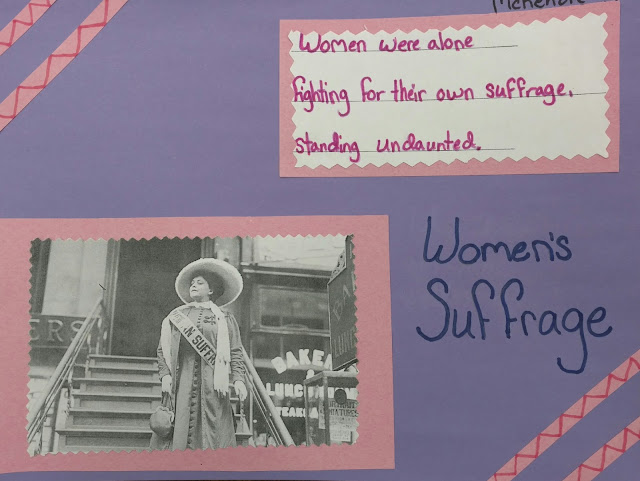 Women were alone
fighting for their own suffrage,
standing undaunted.
Women's
Suffrage
ERS
BAKE
LUNC
STEAKS